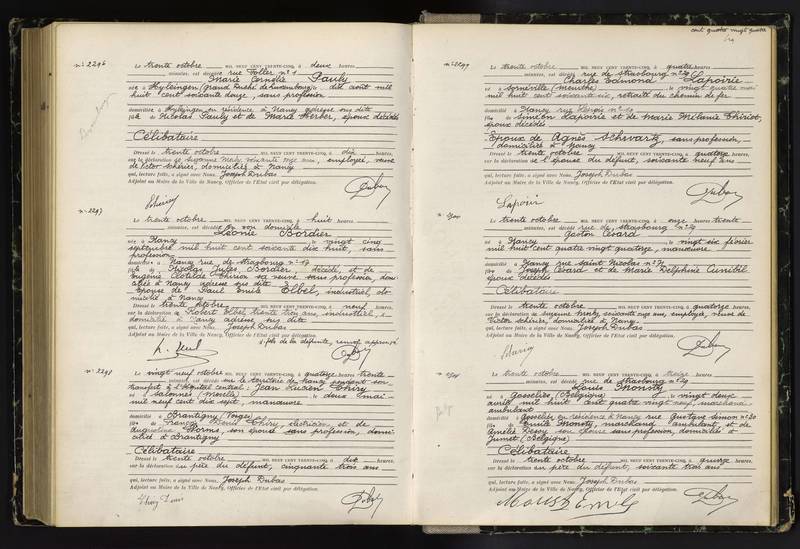 n° 2296
Le trente octobre MIL NEUF CENT TRENTE-CINQ, à deux heures
minutes, est décédée rue Foller n° 1
Marie Cornélie Pauly
née à Hyleingen (Grand Duché de Luxembourg) le dix août mil
huit cent soixante douze, sans profession
domiciliée à Hyleingen en résidence à Nancy adresse sus dite
fille de Nicolas Pauly et de Marie Kerber, époux décédés
Célibataire
Dressé le trente octobre MIL NEUF CENT TRENTE-CINQ, à dix heures,
sur la déclaration de Suzanne Marly, soixante onze ans, employée, veuve
de Victor Schérier, domiciliée à Nancy
qui, lecture faite, a signé avec Nous, Joseph Dubas
Adjoint au Maire de la Ville de Nancy, Officier de l'Etat civil par délégation.
n° 2297
Le trente octobre MIL NEUF CENT TRENTE-CINQ, à huit heures
minutes, est décédée en son domicile
Léonie Bordier
née à Nancy le vingt cinq
septembre mil huit cent soixante dix huit, sans
profession
domiciliée à Nancy rue de Strasbourg n° 17
fille de Nicolas Jules Bordier, décédé, et de
Eugénie Clotilde Chirion sa veuve sans profession, domi-
ciliée à Nancy adresse sus dite
Epouse de Paul Emile Elbel, industriel, do-
micilié à Nancy
Dressé le trente octobre MIL NEUF CENT TRENTE-CINQ, à neuf heures,
sur la déclaration de Robert Elbel, trente trois ans, industriel,
domicilié à Nancy adresse sus dite
qui, lecture faite, a signé avec Nous, Joseph Dubas
Adjoint au Maire de la Ville de Nancy, Officier de l'Etat civil par délégation.
fils de la défunte, renvoi approuvé
n° 2298
Le vingt neuf octobre MIL NEUF CENT TRENTE-CINQ, à quatorze heures trente
minutes, est décédé sur le territoire de Nancy pendant son
transfert à l'Hôpital central : Jean Lucien Thiry
né à Salonnes (Moselle) le deux mai
mil neuf cent dix sept, manœuvre
domicilié à Brantigny (Vosges)
fils de François Denis Thiry, électricien, et de
Augustine Horne son épouse sans profession, domi-
ciliés à Brantigny
Célibataire
Dressé le trente octobre MIL NEUF CENT TRENTE-CINQ, à dix heures,
sur la déclaration du père du défunt, cinquante trois ans
qui, lecture faite, a signé avec Nous, Joseph Dubas
Adjoint au Maire de la Ville de Nancy, Officier de l'Etat civil par délégation.
Thiry Denis
cent quatre vingt quatre
n° 2299
Le trente octobre MIL NEUF CENT TRENTE-CINQ, à quatre heures
minutes, est décédé rue de Strasbourg n° 29
Charles Edmond Lapoirie
né à Loméville (Meurthe) le vingt quatre mai
mil huit cent soixante six, retraité du chemin de fer
domicilié à Nancy rue
fils de Siméon Lapoirie et de Marie Mélanie Chiriot,
époux décédés
Epoux de Agnès Schwartz, sans profession,
domiciliée à Nancy
Dressé le trente octobre MIL NEUF CENT TRENTE-CINQ, à quatorze heures,
sur la déclaration de l'épouse du défunt, soixante neuf ans
qui, lecture faite, a signé avec Nous, Joseph Dubas
Adjoint au Maire de la Ville de Nancy, Officier de l'Etat civil par délégation.
Lapoirie
Le trente octobre MIL NEUF CENT TRENTE-CINQ, à onze heures trente
minutes, est décédé rue de Strasbourg n° 29
Gaston Cevard
né à Nancy le vingt six février
mil huit cent quatre vingt quatre, manœuvre
domicilié à Nancy rue Saint Nicolas
fils de Joseph Cevard et de Marie Delphine Cunibil
époux décédés
Célibataire
Dressé le trente octobre MIL NEUF CENT TRENTE-CINQ, à quatorze heures,
sur la déclaration de Suzanne Marly, soixante onze ans, employée, veuve de
Victor Schérier, domiciliée à Nancy
qui, lecture faite, a signé avec Nous, Joseph Dubas
Adjoint au Maire de la Ville de Nancy, Officier de l'Etat civil par délégation.
Le trente octobre MIL NEUF CENT TRENTE-CINQ, à treize heures,
minutes, est décédé rue de Strasbourg n° 29
Louis Monsty
né à Gosselies (Belgique) le vingt deux
avril mil huit cent quatre vingt neuf, marchand
ambulant
domicilié à Gosselies en résidence à Nancy rue Gustave Simon n° 20
fils de Emile Monsty, marchand ambulant, et de
Amélie Dessy son épouse sans profession, domiciliés à
Jumet (Belgique)
Célibataire
Dressé le trente octobre MIL NEUF CENT TRENTE-CINQ, à quinze heures,
sur la déclaration du père du défunt, soixante trois ans
qui, lecture faite, a signé avec Nous, Joseph Dubas
Adjoint au Maire de la Ville de Nancy, Officier de l'Etat civil par délégation.